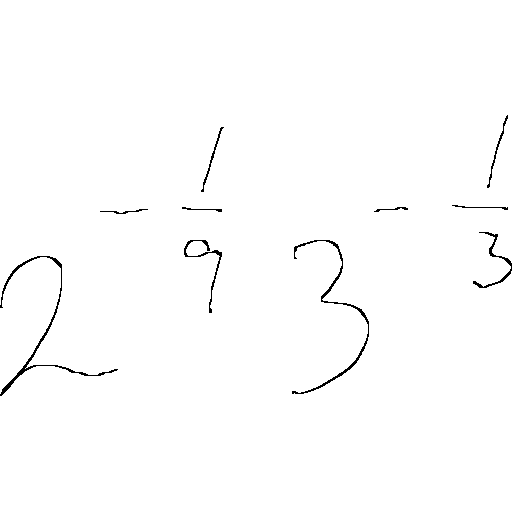 2^{-\frac{1}{9}} 3^{-\frac{1}{3}}